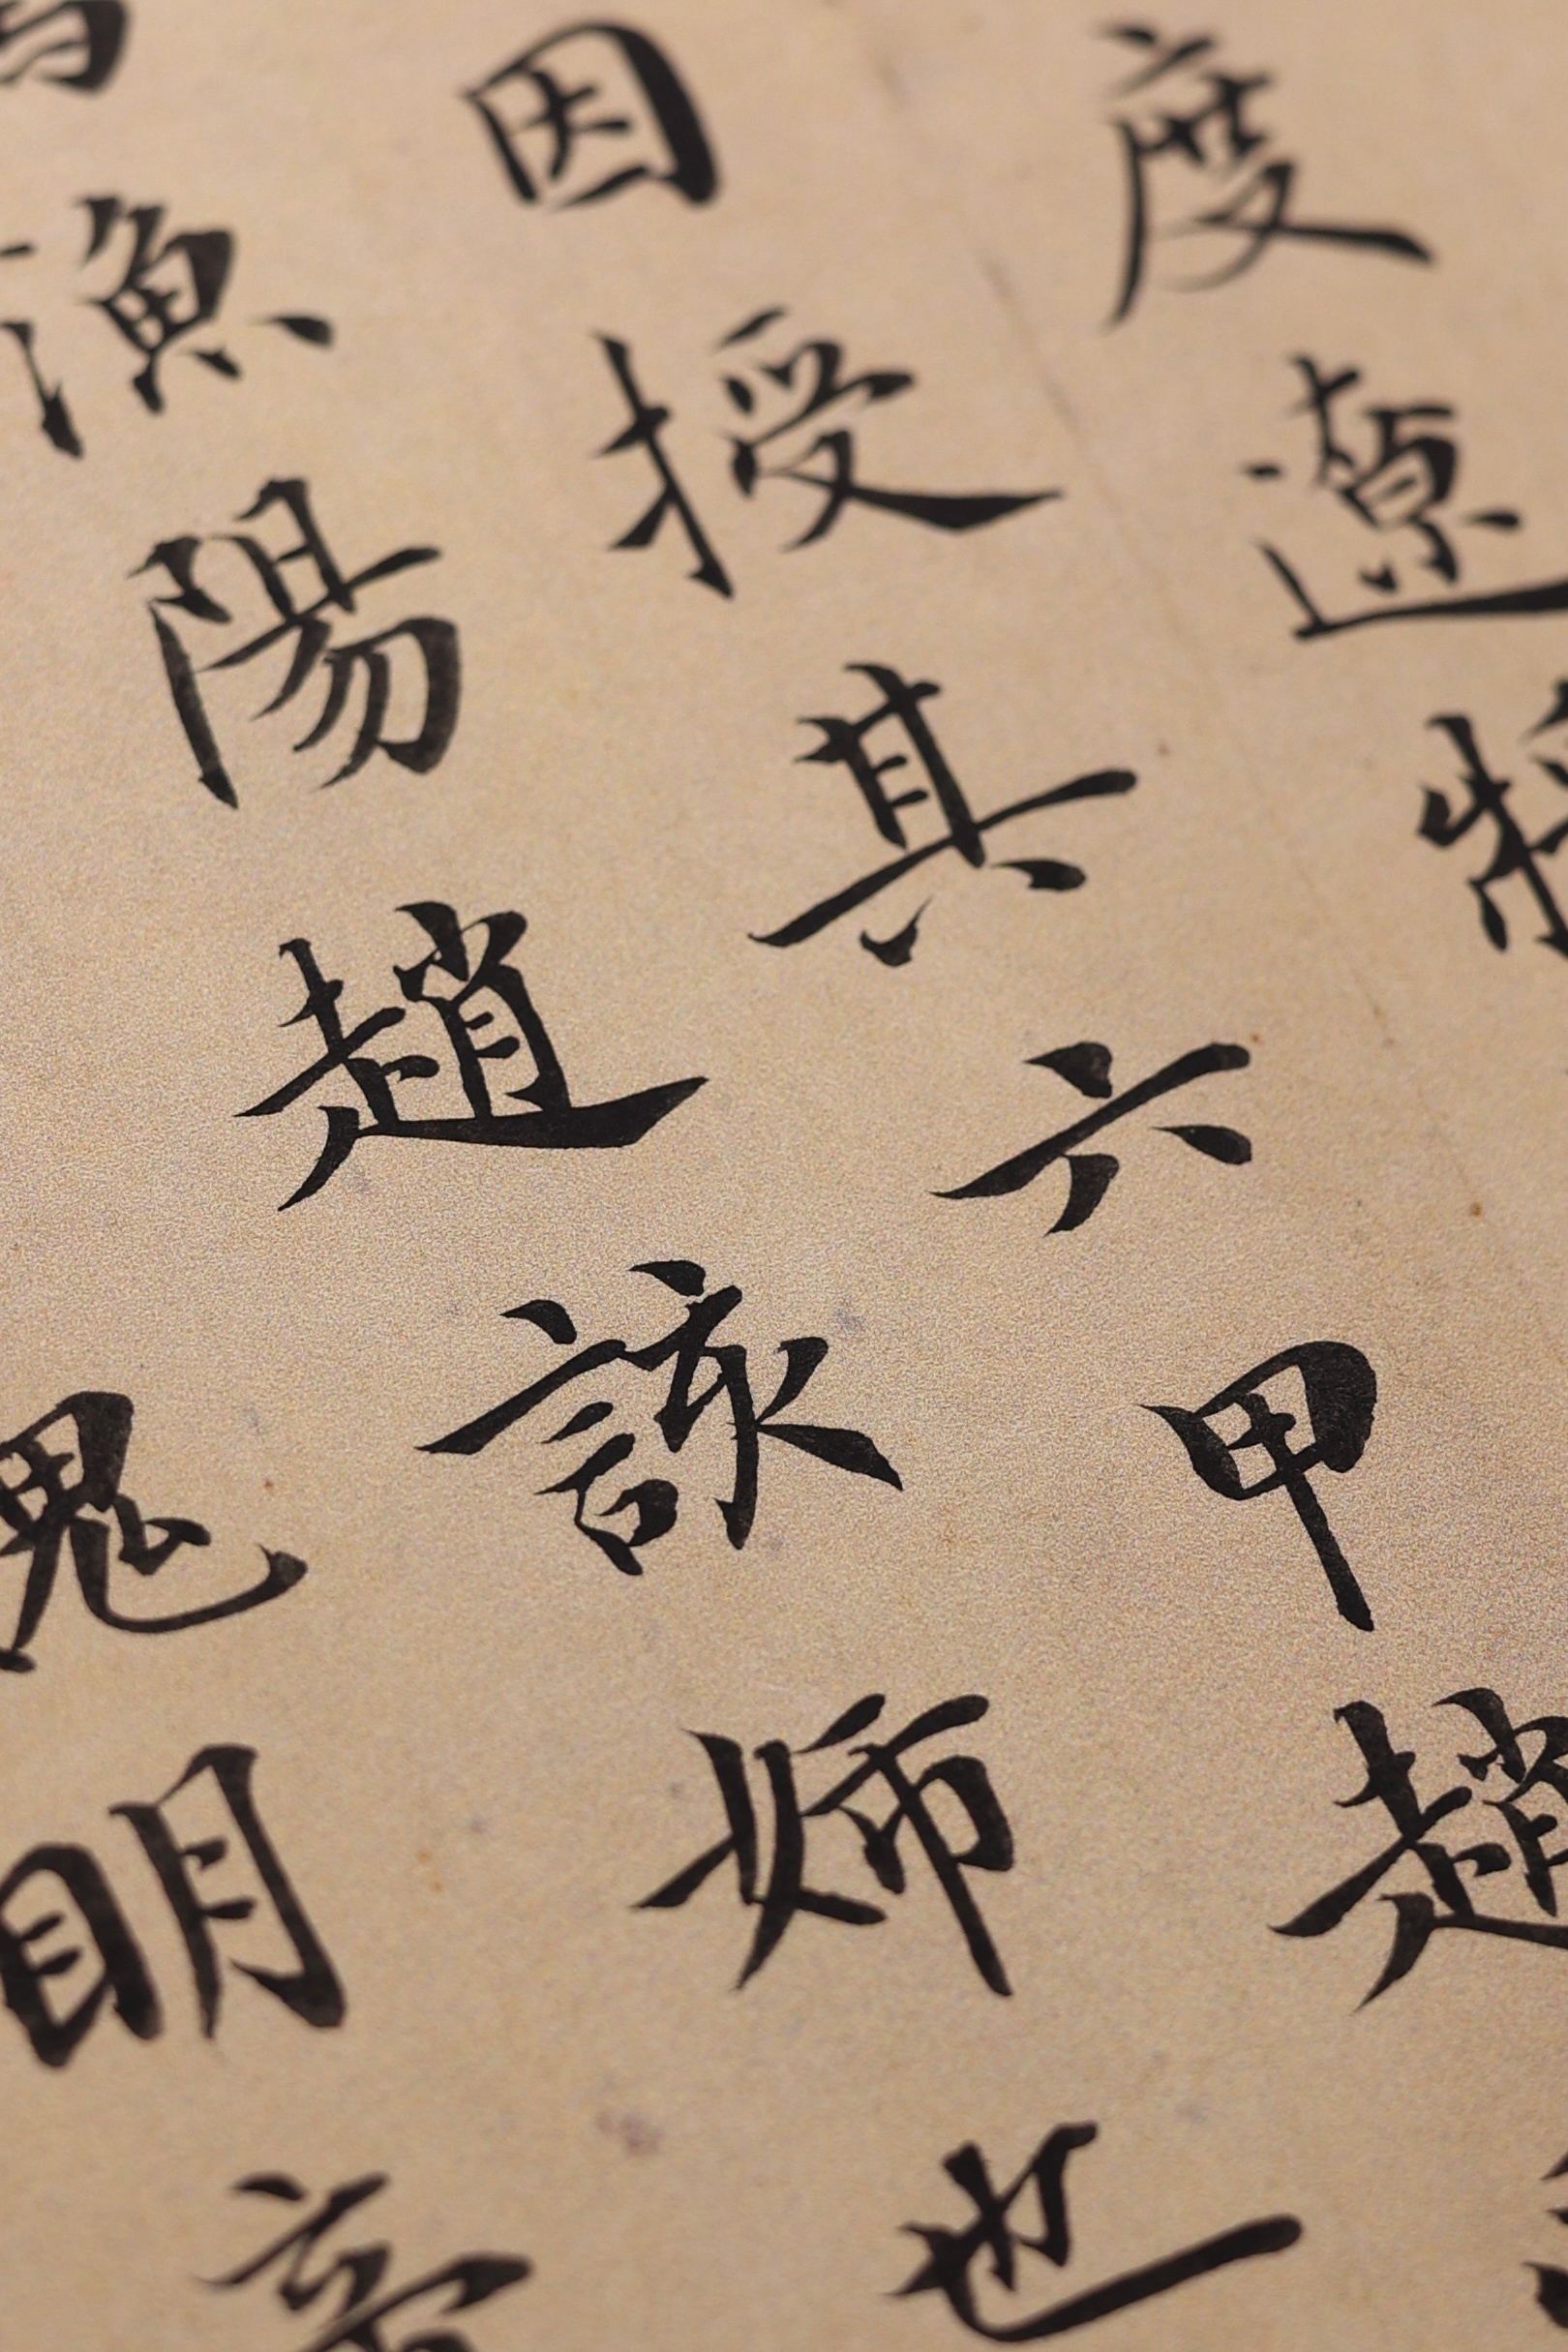 度遼將
因授其六甲趙
漁陽趙詠師也
魏明帝